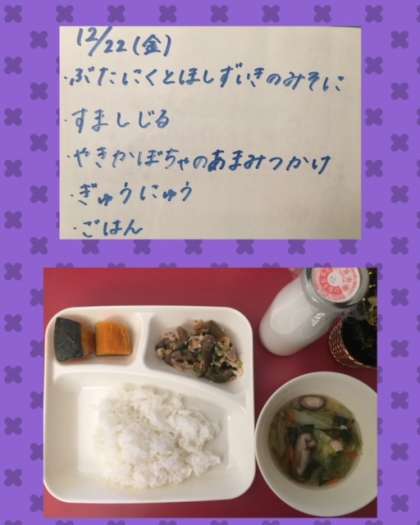 12/22(金)
・ぶたにくとほしずいきのみそに
・すましじる
・やきかぼちゃのあまみつかけ
・ぎゅうにゅう
・ごはん